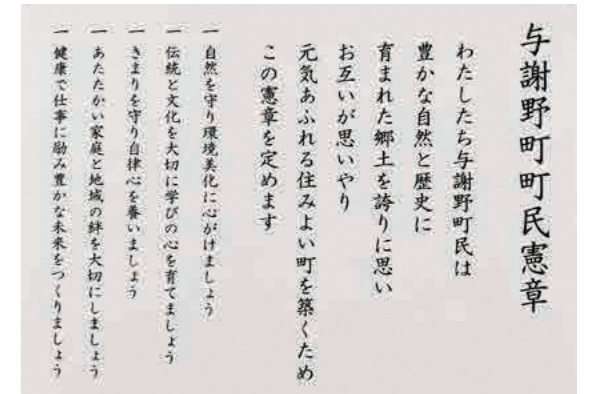 与謝野町町民憲章
わたしたち与謝野町民は
豊かな自然と歴史に
育まれた郷土を誇りに思い
お互いが思いやり
元気あふれる住みよい町を築くため
この憲章を定めます
一 自然を守り環境美化に心がけましょう
一 伝統と文化を大切に学びの心を育てましょう
一 きまりを守り自律心を養いましょう
一 あたたかい家庭と地域の絆を大切にしましょう
一 健康で仕事に励み豊かな未来をつくりましょう